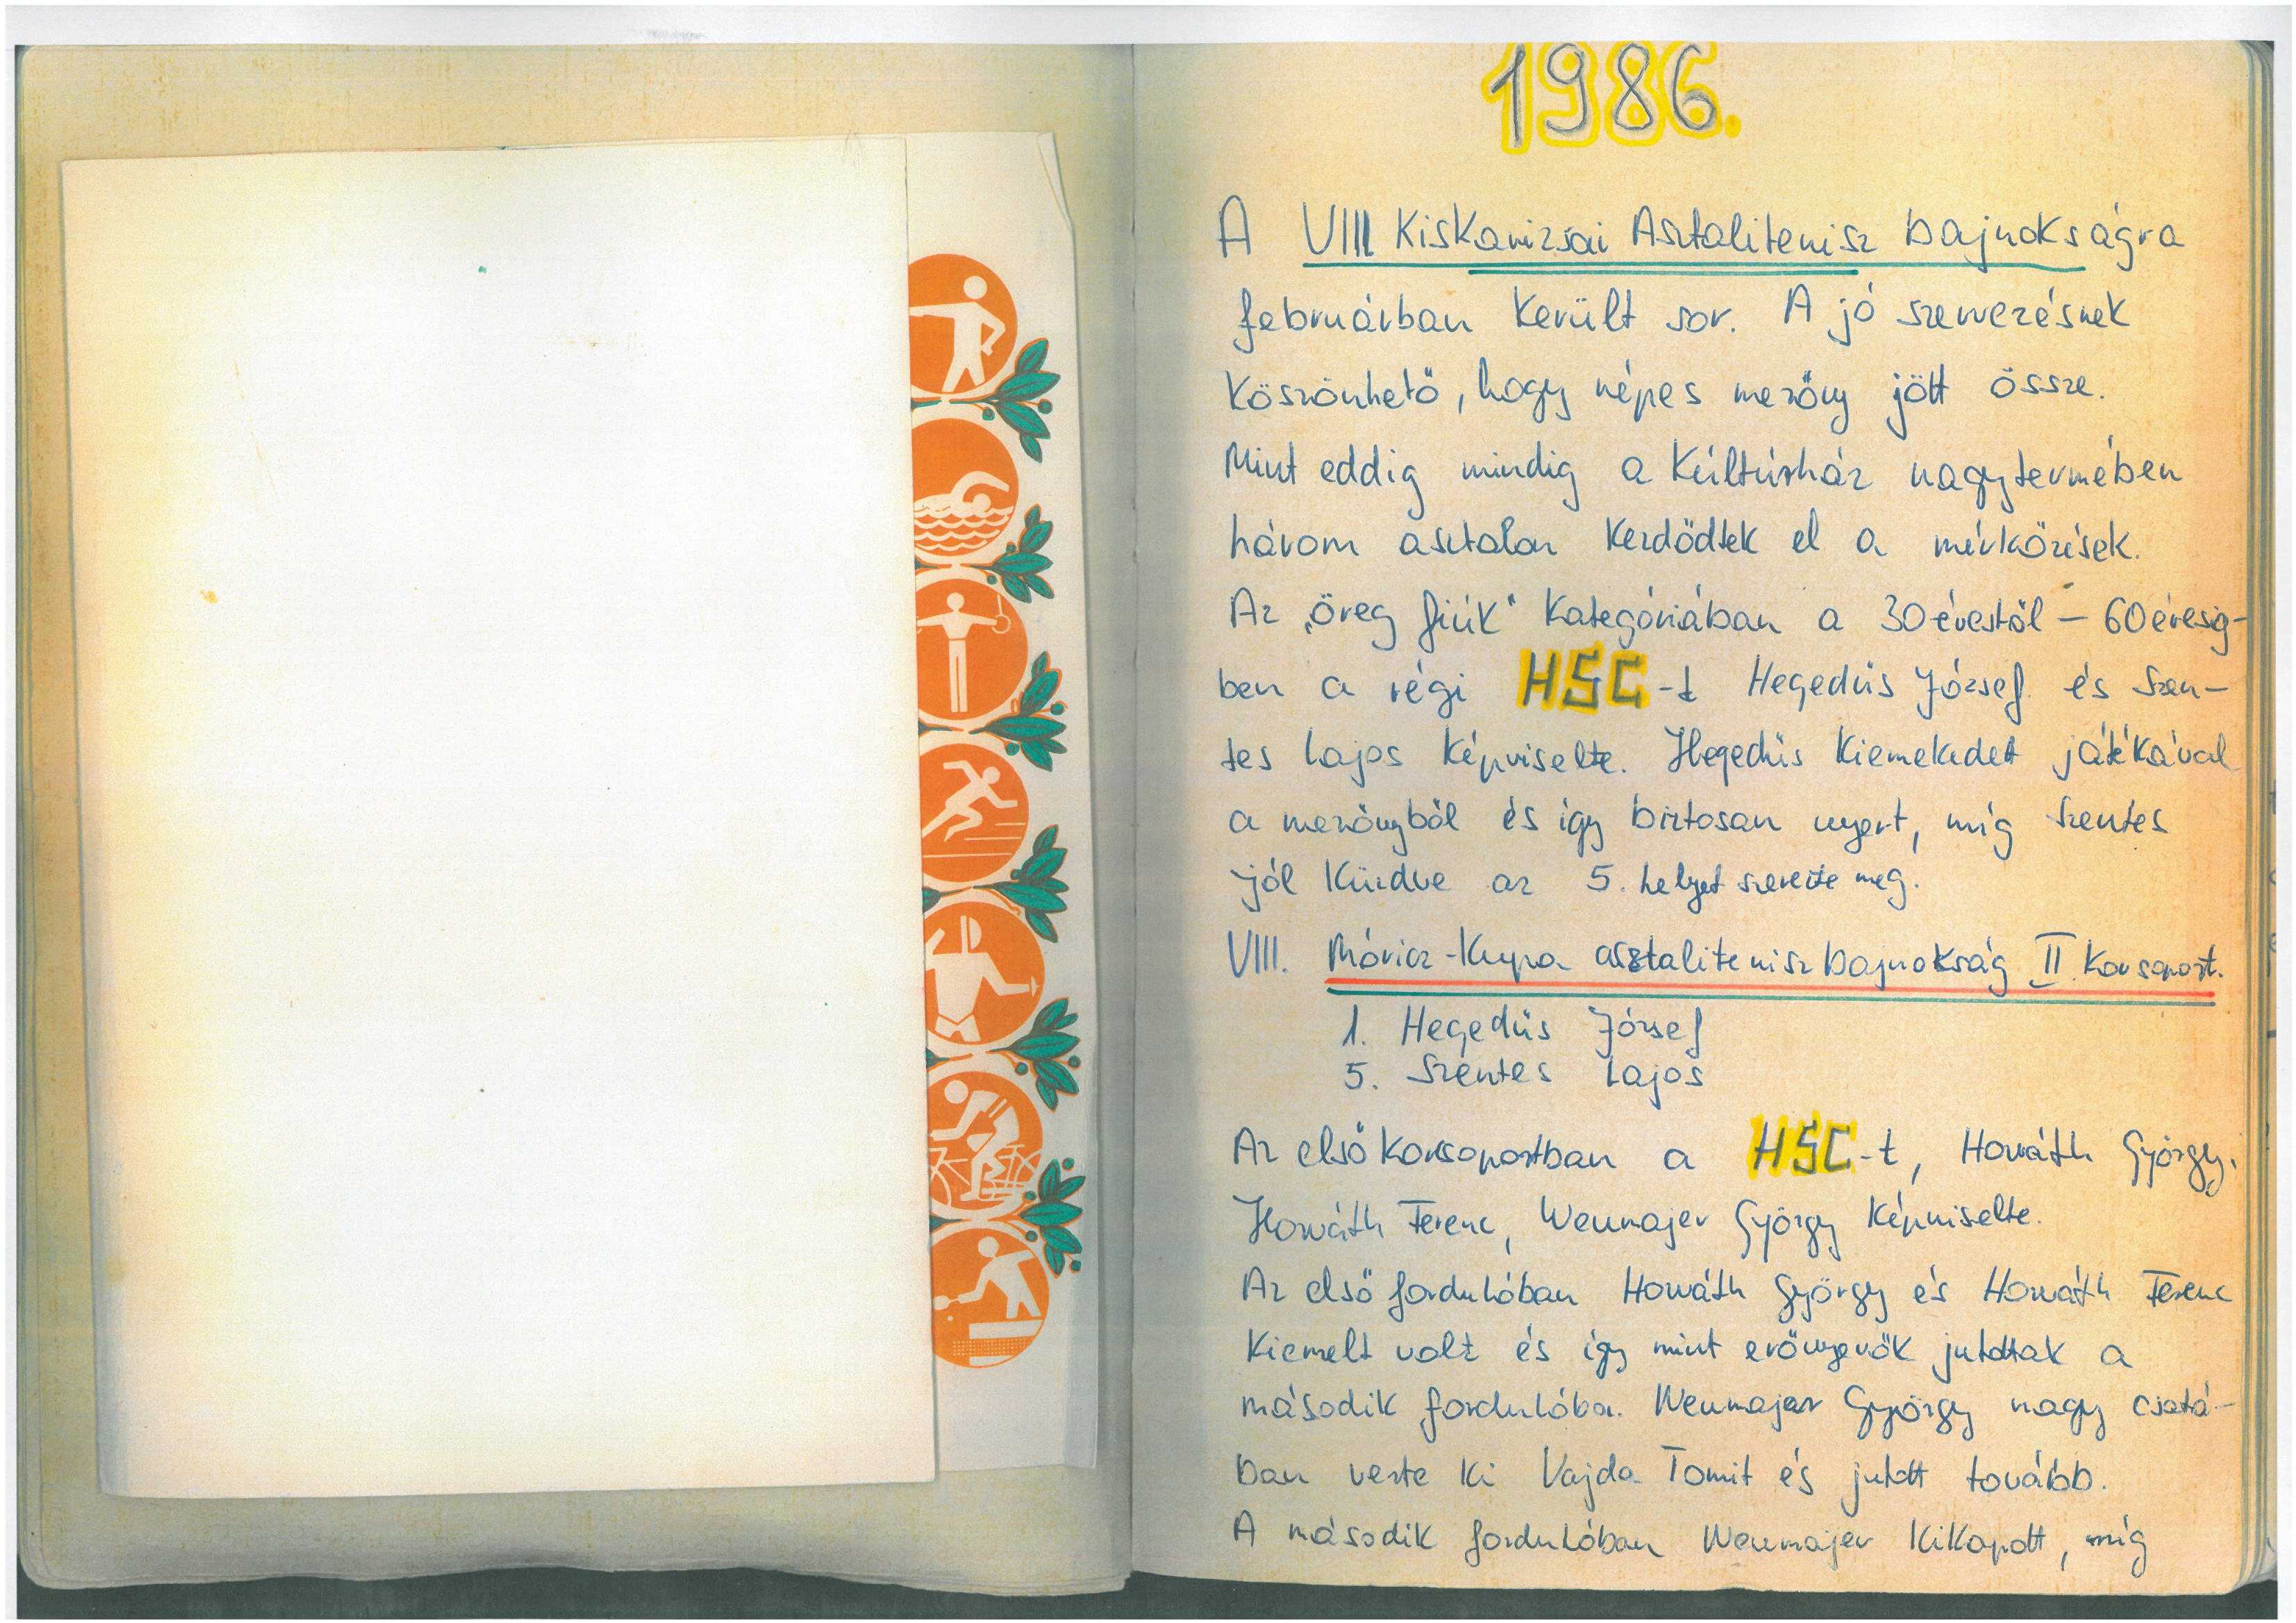 1986.
A VIII Kiskanizsai Asztalitenisz bajnokságra
februárban került sor. A jó szervezésnek
köszönhető, hogy népes mezőny jött össze.
Mint eddig mindig a Kúltúrház nagytermében
három asztalon kezdődtek el a mérkőzések.
Az "öreg fiúk" kategóriában a 30 évestől - 60 évesig-
ben a régi HSC-t Hegedüs József és Szen-
tes Lajos képviselte. Hegedüs kiemekedett játékával
a mezőnyből és így biztosan nyert, míg Szentes
jól küzdve az 5. helyet szerezte meg.
VIII. Móricz-Kupa asztalitenisz bajnokság II. korcsoport.
1. Hegedüs József
5. Szentes Lajos
Az első korcsoportban a HSC-t, Horváth György,
Horváth Ferenc, Weumajer György képviselte.
Az első fordulóban Horváth György és Horváth Ferenc
kiemelt volt és így mint erőnyerők jutottak a
második fordulóba. Weumajer György nagy csatá-
ban verte ki Vajda Tomit és jutott tovább.
A második fordulóban Weumajer kikapott, míg